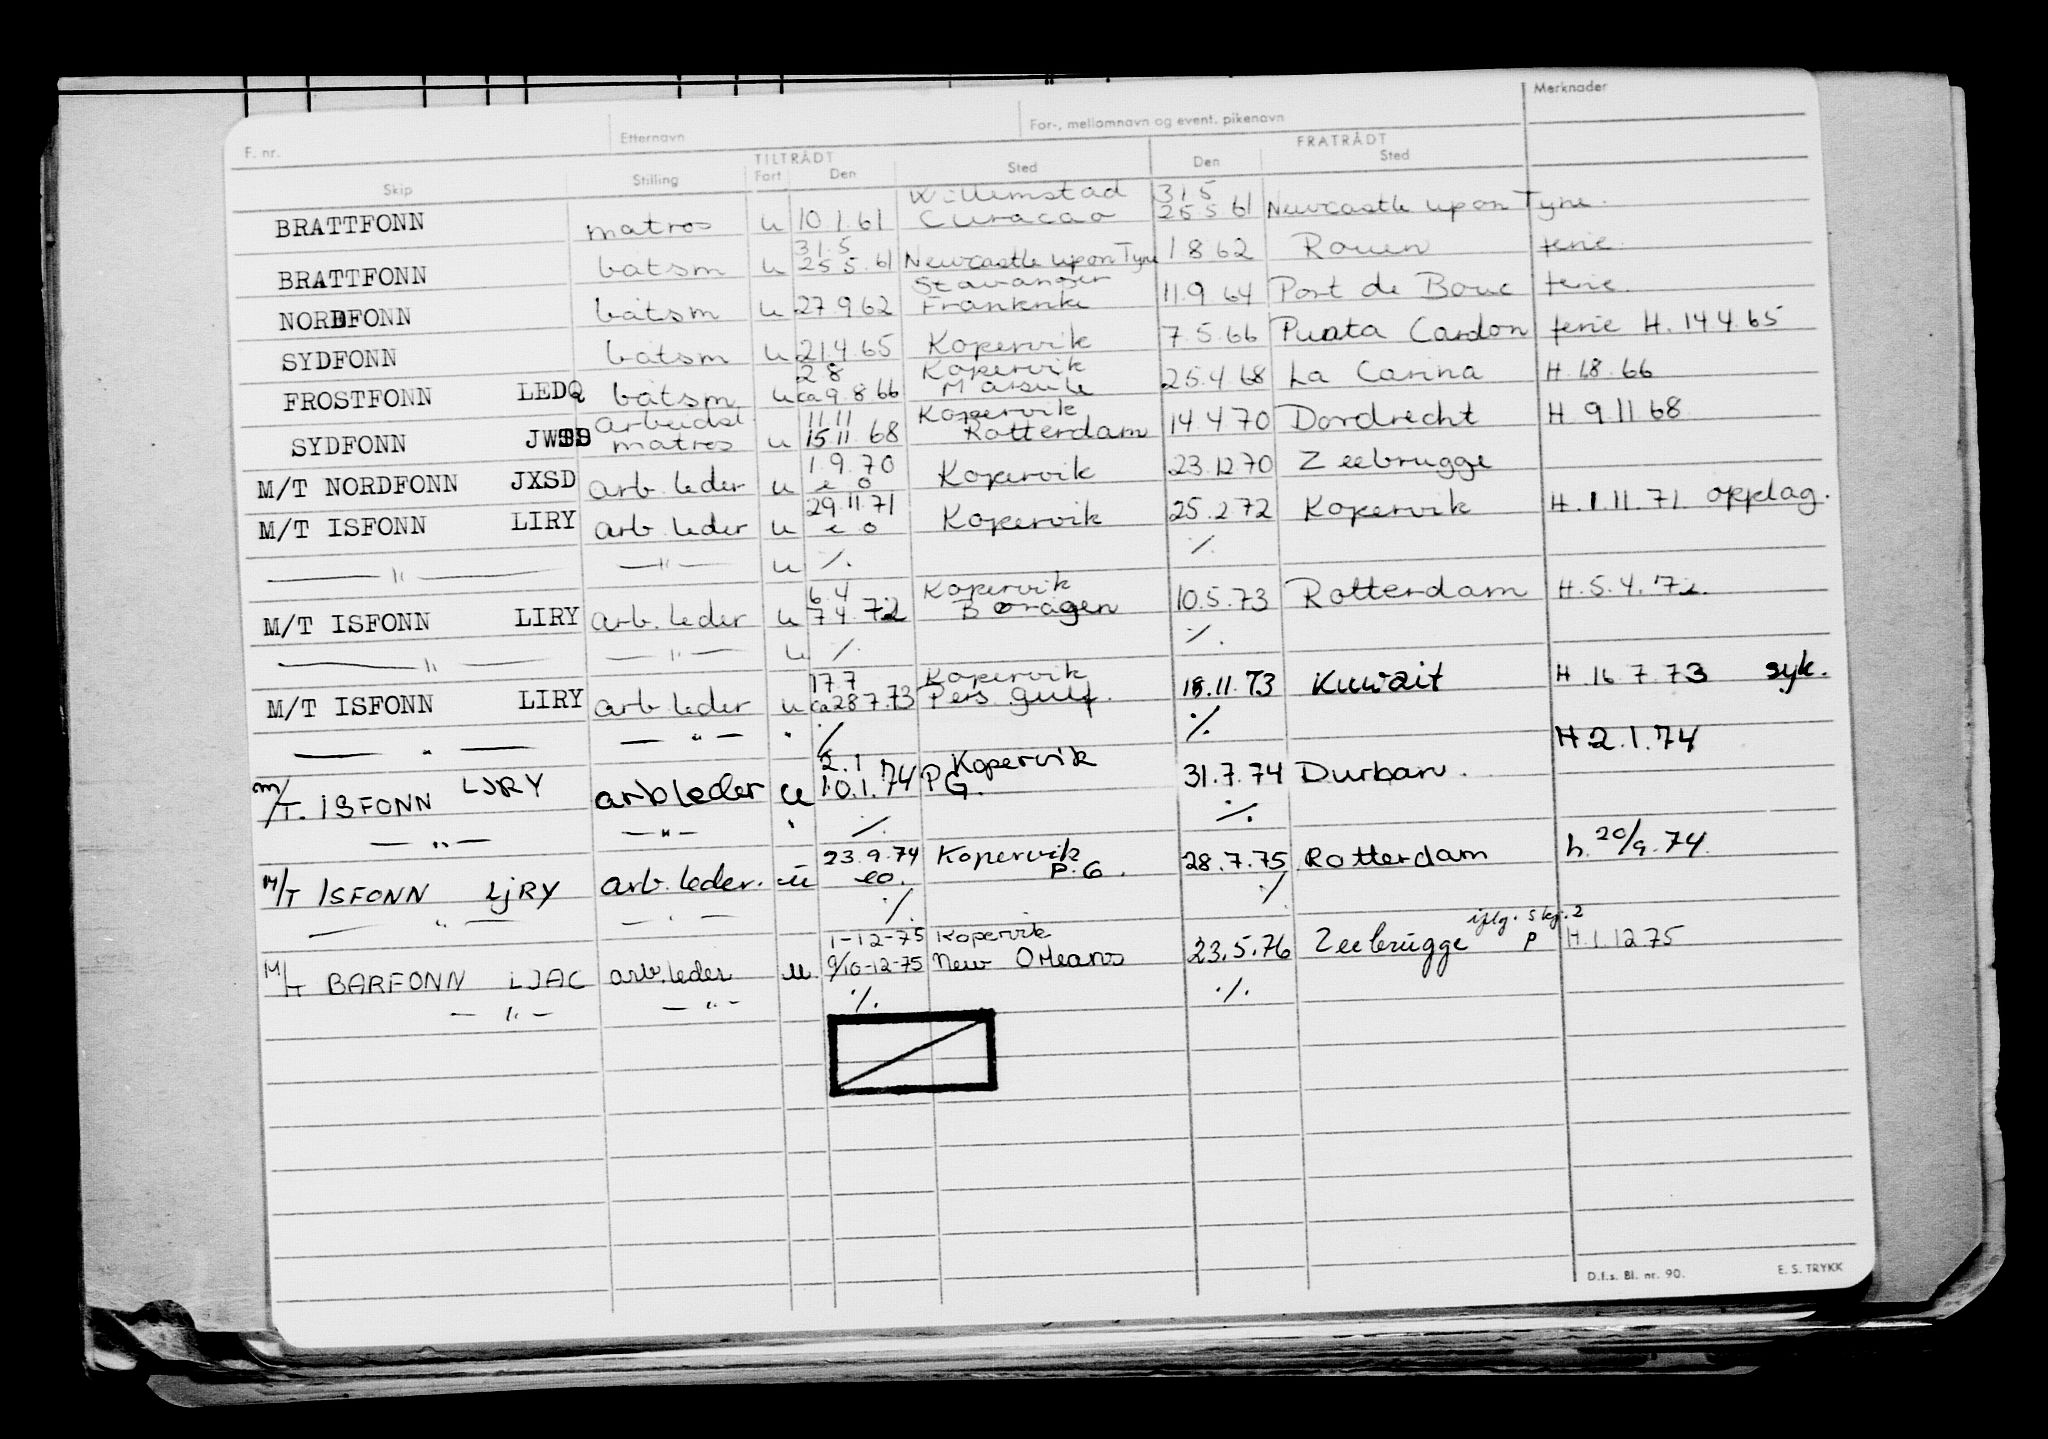 F. nr. Etternavn For-, mellomnavn og event. pikenavn Merknader
TILTRÅDT FRATRÅDT
Skip Stilling Fort Den Sted Den Sted
Willemstad 31 5
BRATTFONN matros u 10 1.61 Curacao 25.5 61 Newcastle upon Tyne.
31.5
BRATTFONN båtsm u 25 5.61 Newcastle upon Tyne 1 8 62 Rouen ferie.
Stavanger
NORDFONN båtsm u 27.9 62 11.9 64 Port de Bouc ferie.
SYDFONN båtsm u 21.4.65 Kopervik 7.5.66 Punta Cardon ferie H. 14 4.65
2 8 Kopervik
FROSTFONN LEDQ båtsm u ca 9.8 66 25.4 68 La Carina H. 1.8.66
arbeidsl 11 11 Kopervik
SYDFONN matros u 15.11.68 Rotterdam 14.4.70 Dordrecht H. 9.11.68
1.9.70
M/T NORDFONN JXSD arb. leder u e o Kopervik 23.12.70 Zeebrugge
29.11.71
M/T ISFONN LIRY arb. leder u e o Kopervik 25.2.72 Kopervik H. 1.11.71. opplag.
— " — — " — u ·/. ·/.
6.4 Kopervik
M/T ISFONN LIRY arb. leder u 7 4.72 10.5.73 Rotterdam H. 5.4.72.
— " — — " — u ·/. ·/.
17.7 Kopervik
M/T ISFONN LIRY arb. leder u ca 28 7.73 Pers. gulf. 18.11.73 Kuwait H. 16 7.73 syk.
— " — — " — " ·/. ·/.
2.1 Kopervik H 2.1.74
M/T. ISFONN LJRY arbleder u 10.1.74 PG. 31.7.74 Durban.
— " — — " — " ·/. ·/.
23.9.74 Kopervik
M/T ISFONN LjRY arb. leder. u eo. P.G. 28.7.75 Rotterdam h. 20/9.74.
— " — — " — ·/. ·/.
1-12-75 Kopervik iflg. skj. 2
M/T BARFONN LJAC arb. leder u. 9/10-12-75 New Orleans 23.5.76 Zeebrugge P H. 1.12 75
— " — — " — ·/. ·/.
D.f.s. Bl. nr. 90. E. S. TRYKK